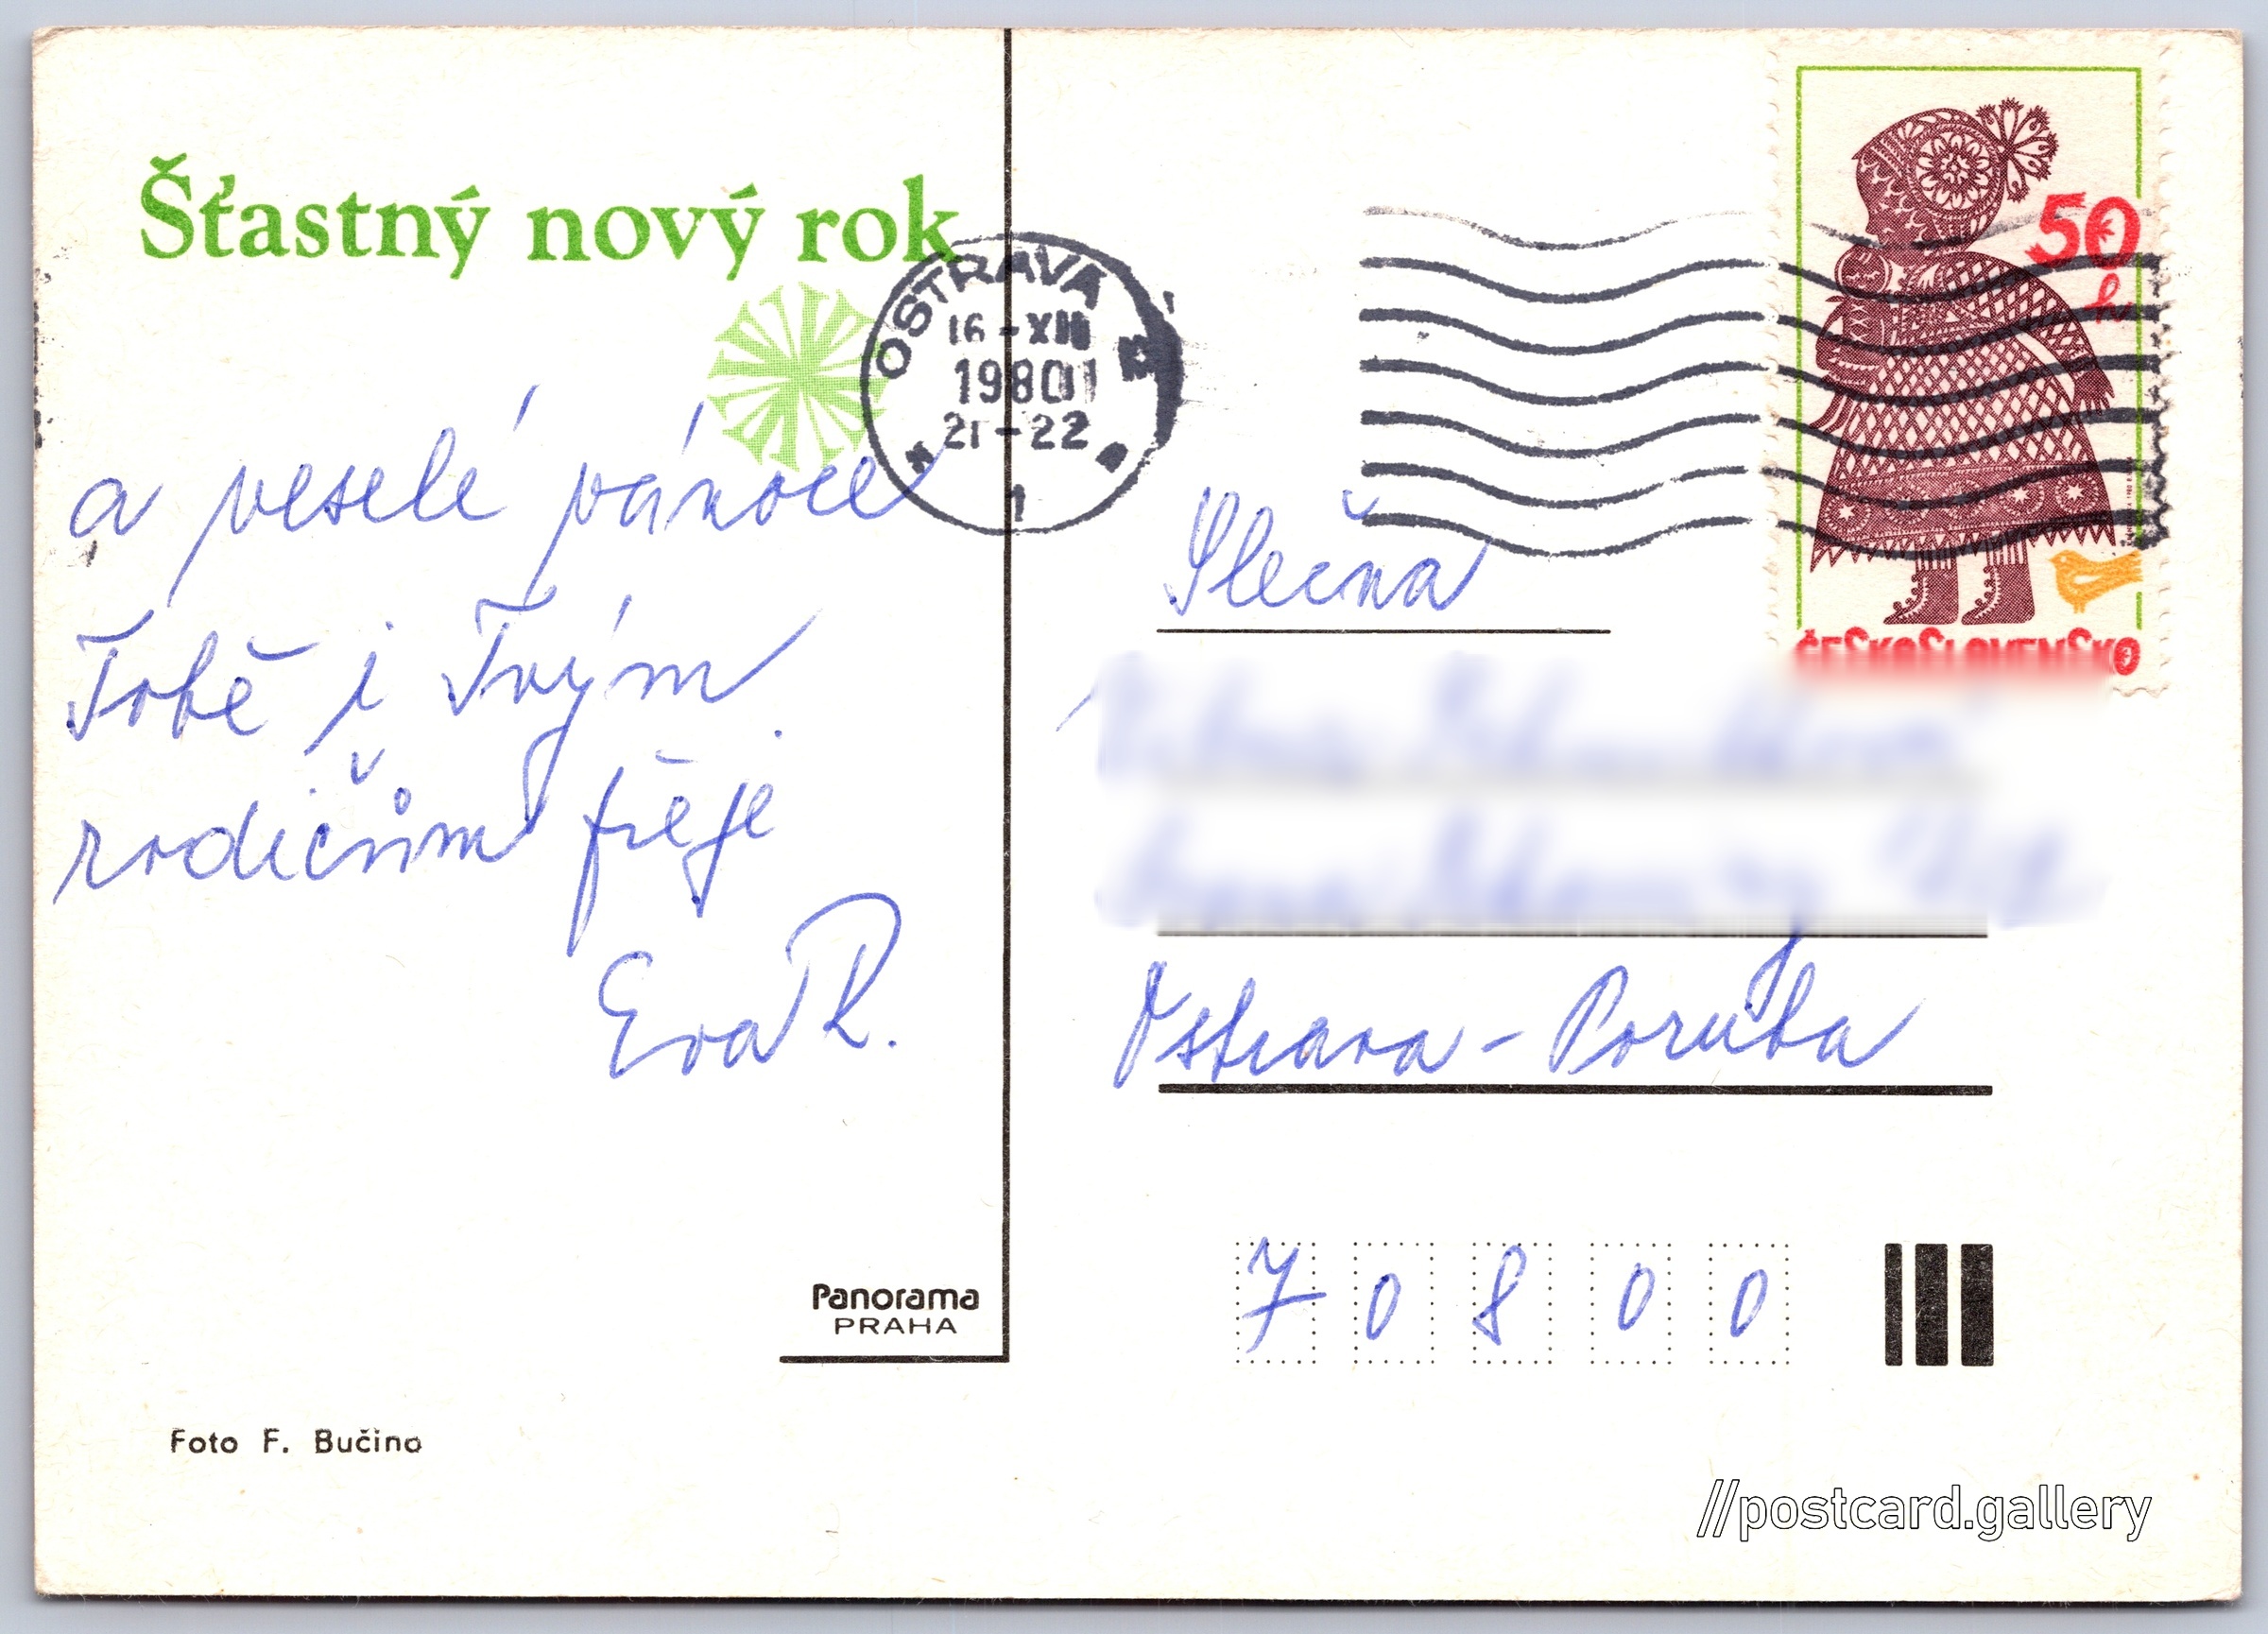 Šťastný nový rok
a veselé vánoce
Tobě i Tvým
rodičům přeje
Eva R.
Panorama
PRAHA
Foto F. Bučina
OSTRAVA
16-XII
1980
21-22
1
50
h
ČESKOSLOVENSKO
Slečna
Ostrava - Poruba
7 0 8 0 0
//postcard.gallery